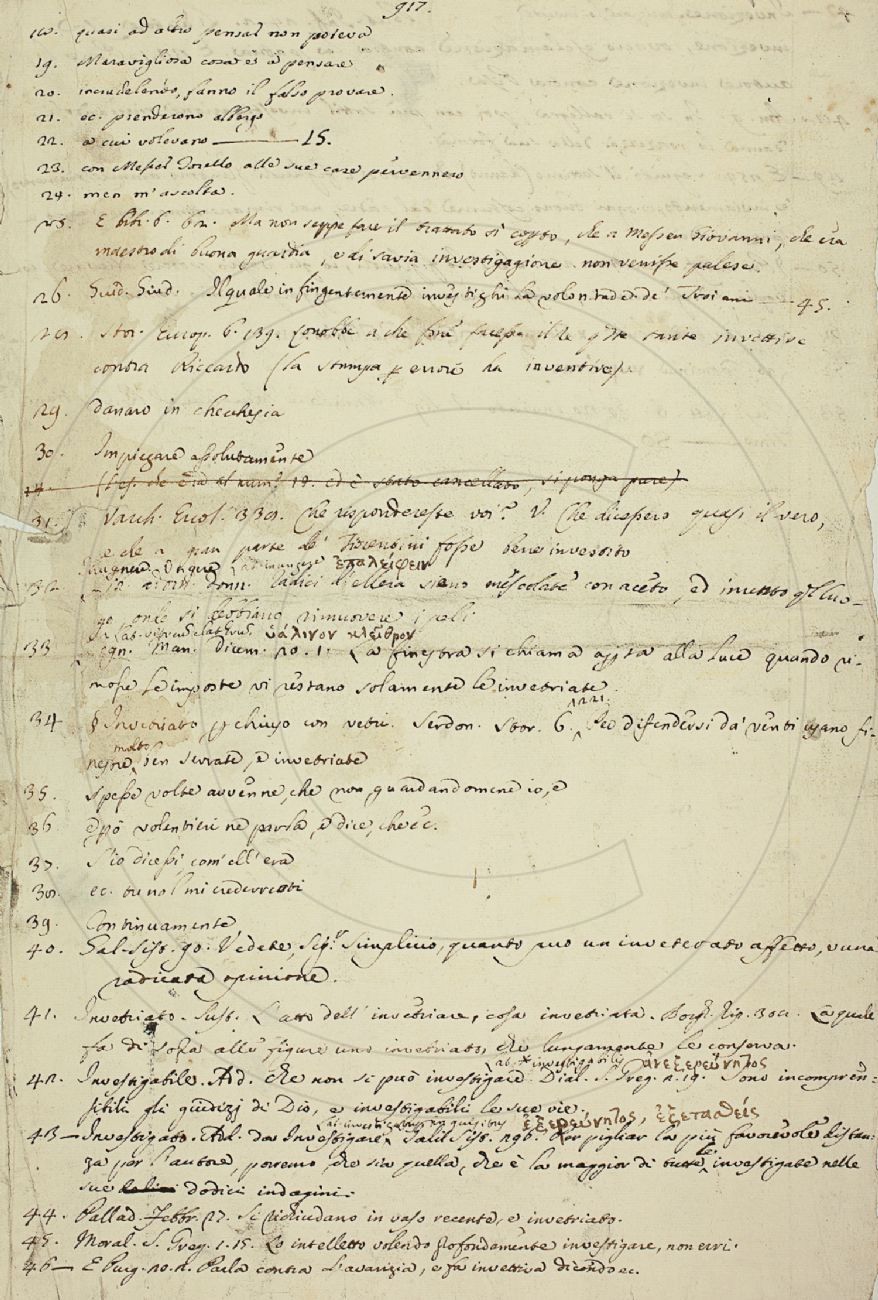 917.
18. quasi ad altro pensar non poteva
19. Maravigliosa cosa è a pensare
20. incrudelendo, fanno il falso provare.
21. ec. prenderono albergo
22. a cui volevano 15.
23. con Messer Torello alle sue case pervennero
24. men m'ascolta.
25. E lib. 6. Ma non seppe fare il trattato sì coperto, che a Messer Giovanni, che era
maestro di buona guardia, e di savia investigagione non venisse palese.
26. Guid. Giud. Il quale infingentemente investighi la volontade de' Troiani 45.
28. Stor. Europ. 6. 139. Conobbe a che fine facesse il Re queste tante invettive
contra Riccardo (la stampa per errore ha inventive)
29. danaro in checchesia
30. Impiegare assolutamente
al num. 18. ed è stato cancellato, si ponga pure)
31. Varch. Ercol. 338. Che rispondereste voi? V. Che dicessero quasi il vero,
e che a gran parte de' Fiorentini fosse bene investito
ἐπαλείφειν
32. adorn. donn. Radici d'ellera sieno mescolate con aceto, ed inunto quel luo-
go, onde si debbiano rimuovere i peli.
ὑάλινον κλεῖθρον
33 Segn. Man. Dicem. 20. 1. La finestra si chiama aperta alla luce quando ri-
mosse le imposte vi restano solamente le invetriate.
34 § Invetriato per chiuso con vetri. Serdon. Stor. 6. 221. Per difendersi da' venti usano fi-
nestre molto ben serrate, e invetriate
35. spesse volte avvenne, che non guardandomene io, e
36 e più volentieri ne parla, e dice, che ec.
37. S'io dicessi com'ell'era
38. ec. tu nol mi crederresti
39. Continuamente
40. Gal. Sist. 90. Vedete, Sig.r Simplicio, quanto può un inveterato affetto, e una
radicata opinione.
41. Invetriato. Sust. L'atto dell'invetriare, e cosa invetriata. Borgh. Rip. 302. La quale
fa di sopra alle figure uno invetriato, che lungamente le conserva.
ab investigabilis ἀνεξερεύνητος
42. Investigabile. Ad. Che non si può investigare. Dial. S. Greg. 2. 19. Sono incompren-
sibili gli giudizj di Dio, e investigabili le sue vie.
ἐξερεύνητος, ἐξετασθείς
43 Investigato. Ad. da Investigare. Galil. Sist. 296. Per pigliar la più favorevole distan-
za per l'autore, porremo che sia quella, che è la maggior di tutte le investigate nelle
sue dodici indagini.
44. Pallad. Febbr. 27. Si richiudano in vaso recente, e invetriato.
45. Moral. S. Greg. 1. 15. Lo intelletto volendo profondamente investigare, non erri.
46 E Purg. 20. 2. Parla contra l'avarizia, e fa invettiva dicendo ec.